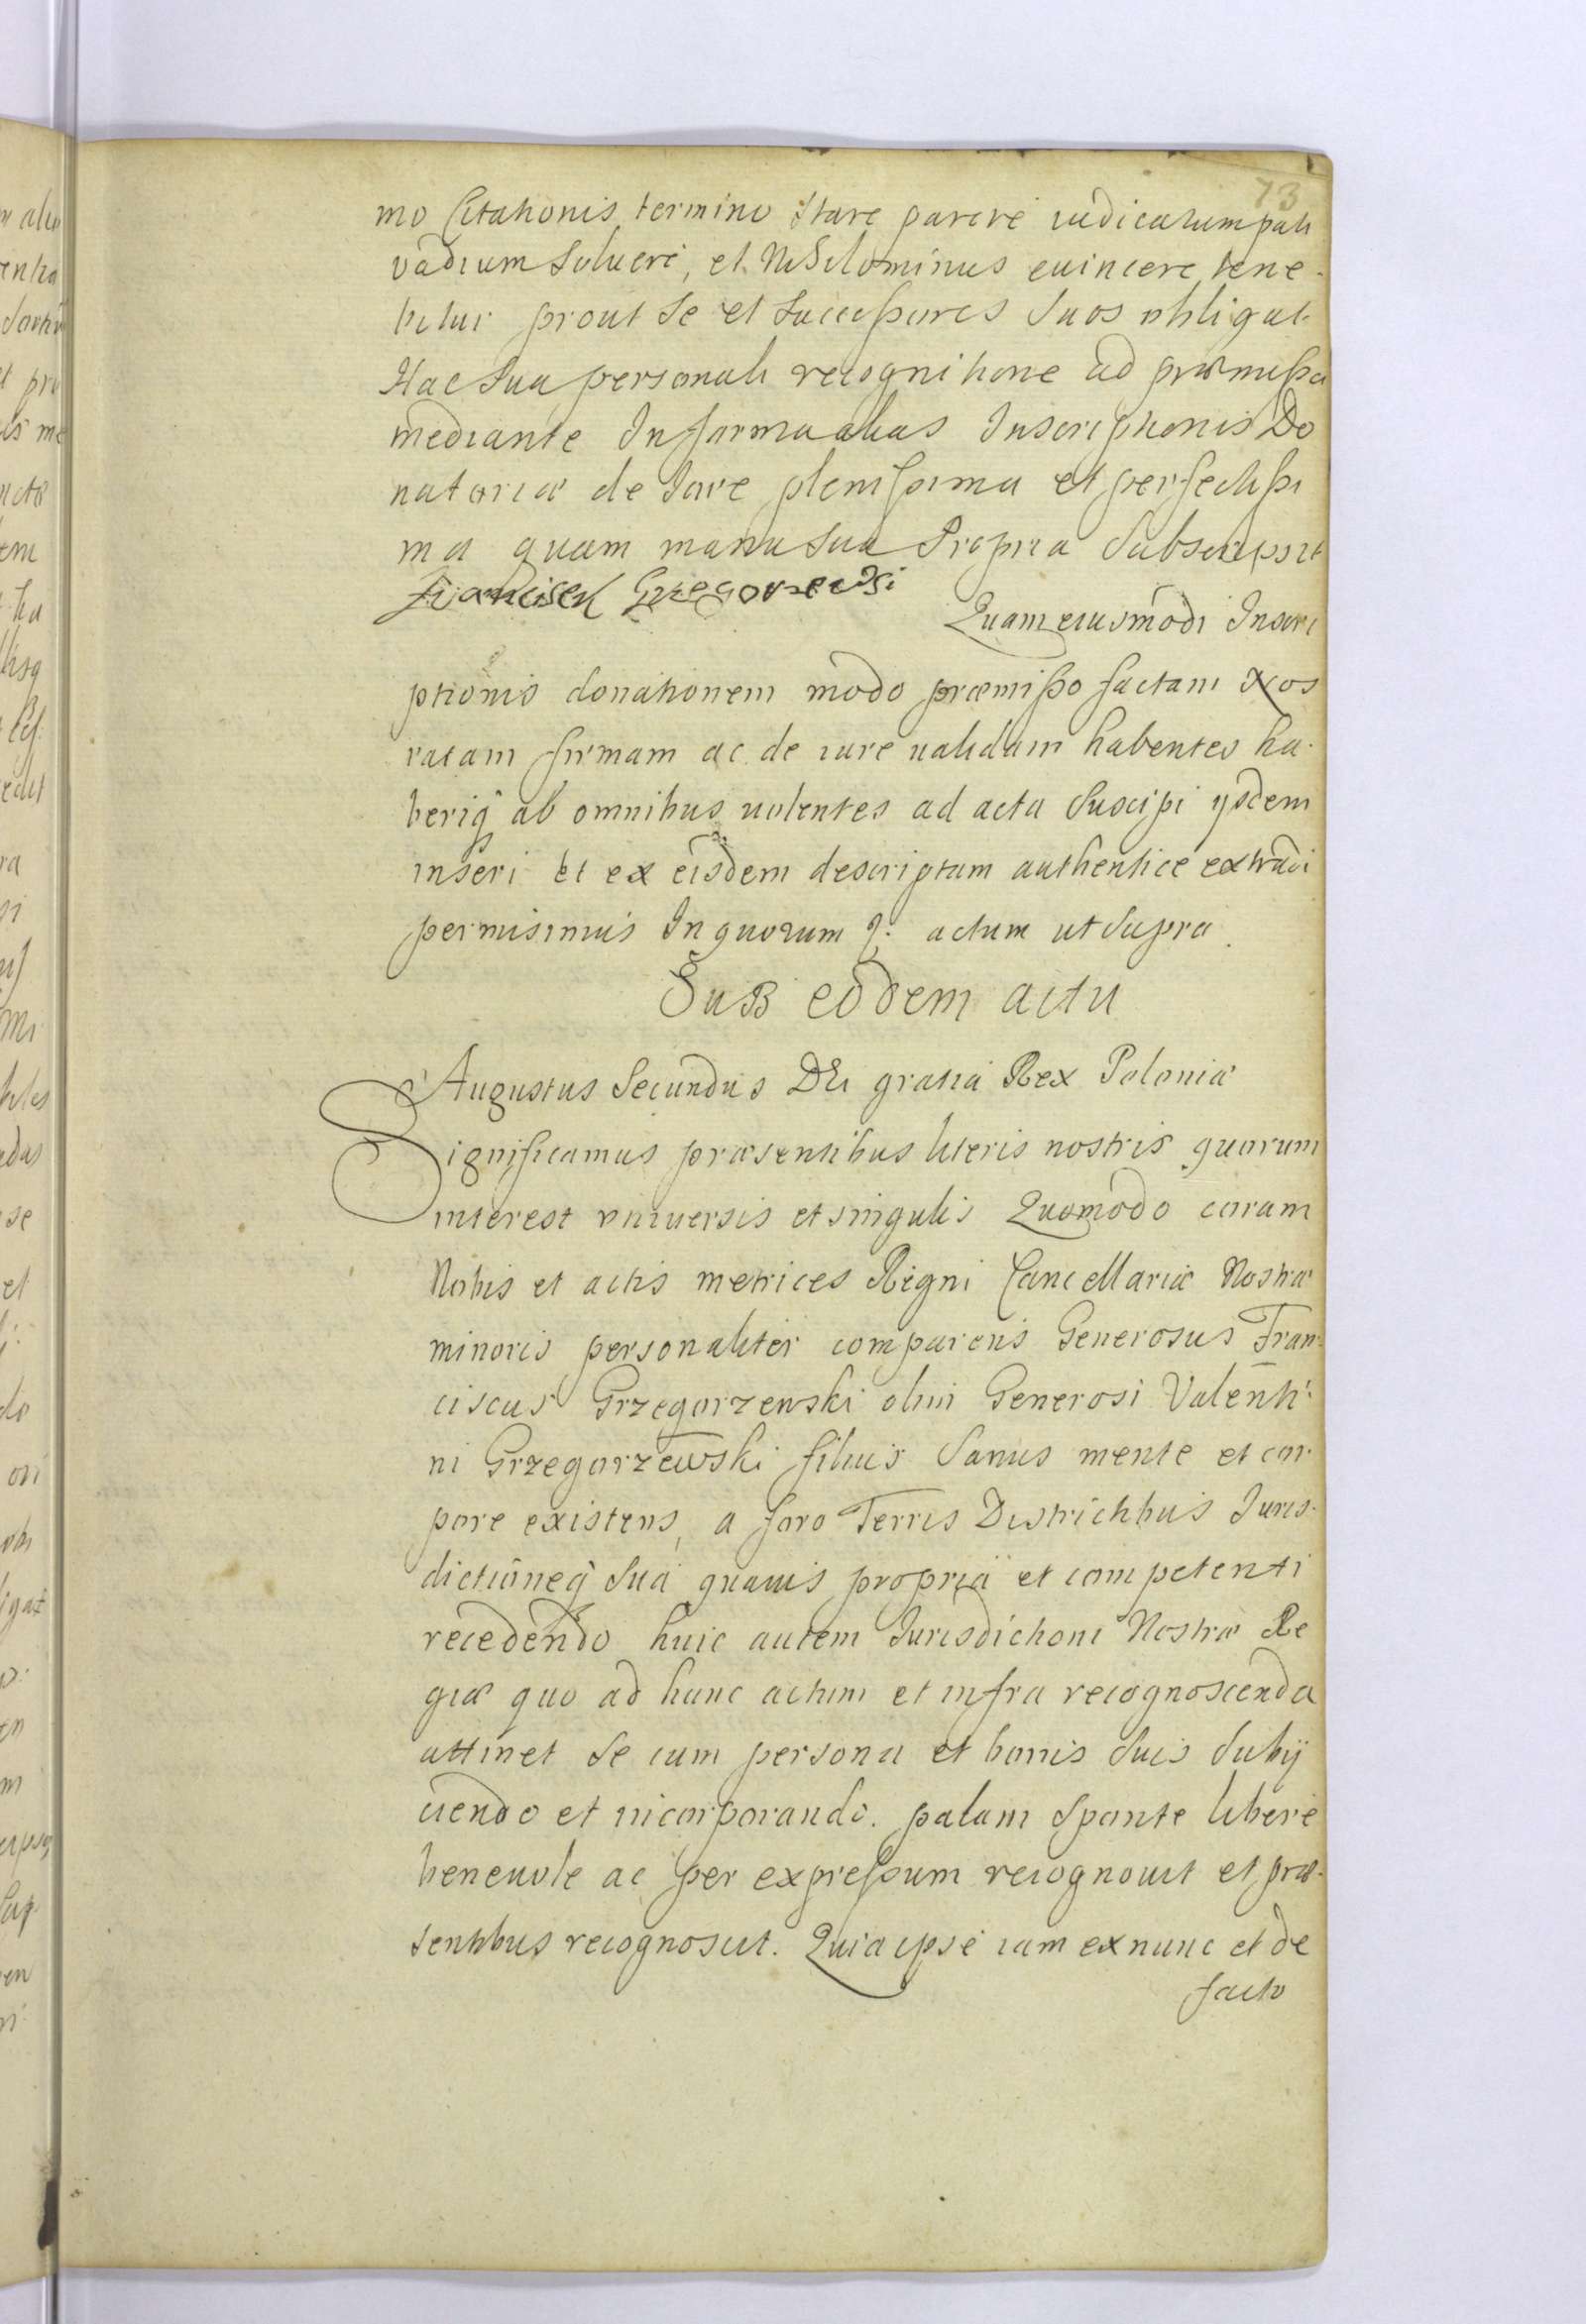 73
mo Citationis termino stare parere iudicatum pati
vadium soluere, et Nihilominus euincere tene-
bitur prout se et successores suos obligat.
Hac sua personali recognitione ad præmissa
mediante In forma alias Inscriptionis Do
natoriæ de Jure plenissima et perfectissi
ma quam manu sua Propria subscripsit
Franciszek Grzegorzewski
Quam eiusmodi Inscri
ptionis donationem modo præmisso factam Nos
ratam firmam ac de iure ualidam habentes ha-
beriq ab omnibus uolentes ad acta suscipi ysdem
inseri et ex eisdem descriptum authentice extradi
permisimus In quorum f: actum ut supra.
SuB eodem actu
Augustus Secundus DEi gratia Rex Poloniæ
Significamus præsentibus literis nostris quorum
interest vniuersis et singulis Quomodo coram
Nobis et actis metrices Regni Cancellariæ Nostræ
minoris personaliter comparens Generosus Fran-
ciscus Grzegorzewski olim Generosi Valenti-
ni Grzegorzewski filius sanus mente et cor-
pore existens, a foro Terris Districtibus Juris-
dictioneq sua quauis propria et competenti
recedendo huic autem Jurisdictioni Nostræ Re
giæ quo ad hunc actum et infra recognoscenda
attinet se cum persona et bonis suis subij
ciendo et incorporando. palam sponte libere
beneuole ac per expressum recognouit et præ-
sentibus recognoscit. Quia ipse iam ex nunc et de
facto